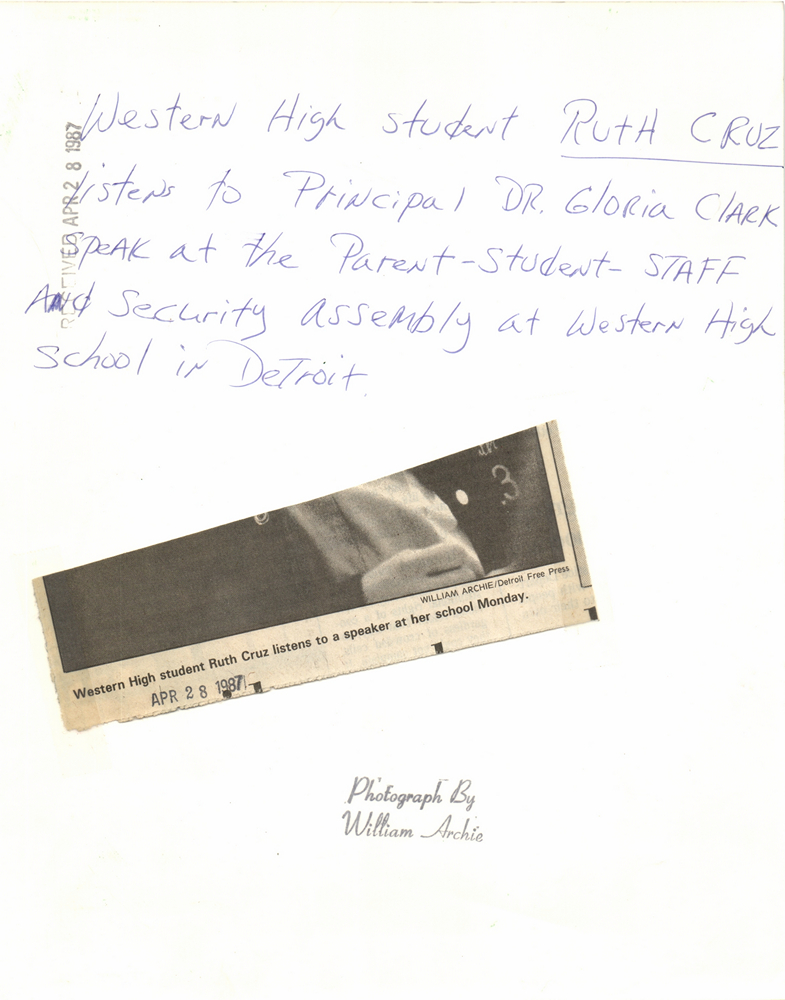 Western High student RutH CRUZ
listens to Principal DR. Gloria Clark
SpeAK at the Parent-Student- STAFF
And Security assembly at Western High
school in Detroit.
RECEIVED APR 28 1987
3
WILLIAM ARCHIE/Detroit Free Press
Western High student Ruth Cruz listens to a speaker at her school Monday.
APR 28 1987
Photograph By
William Archie